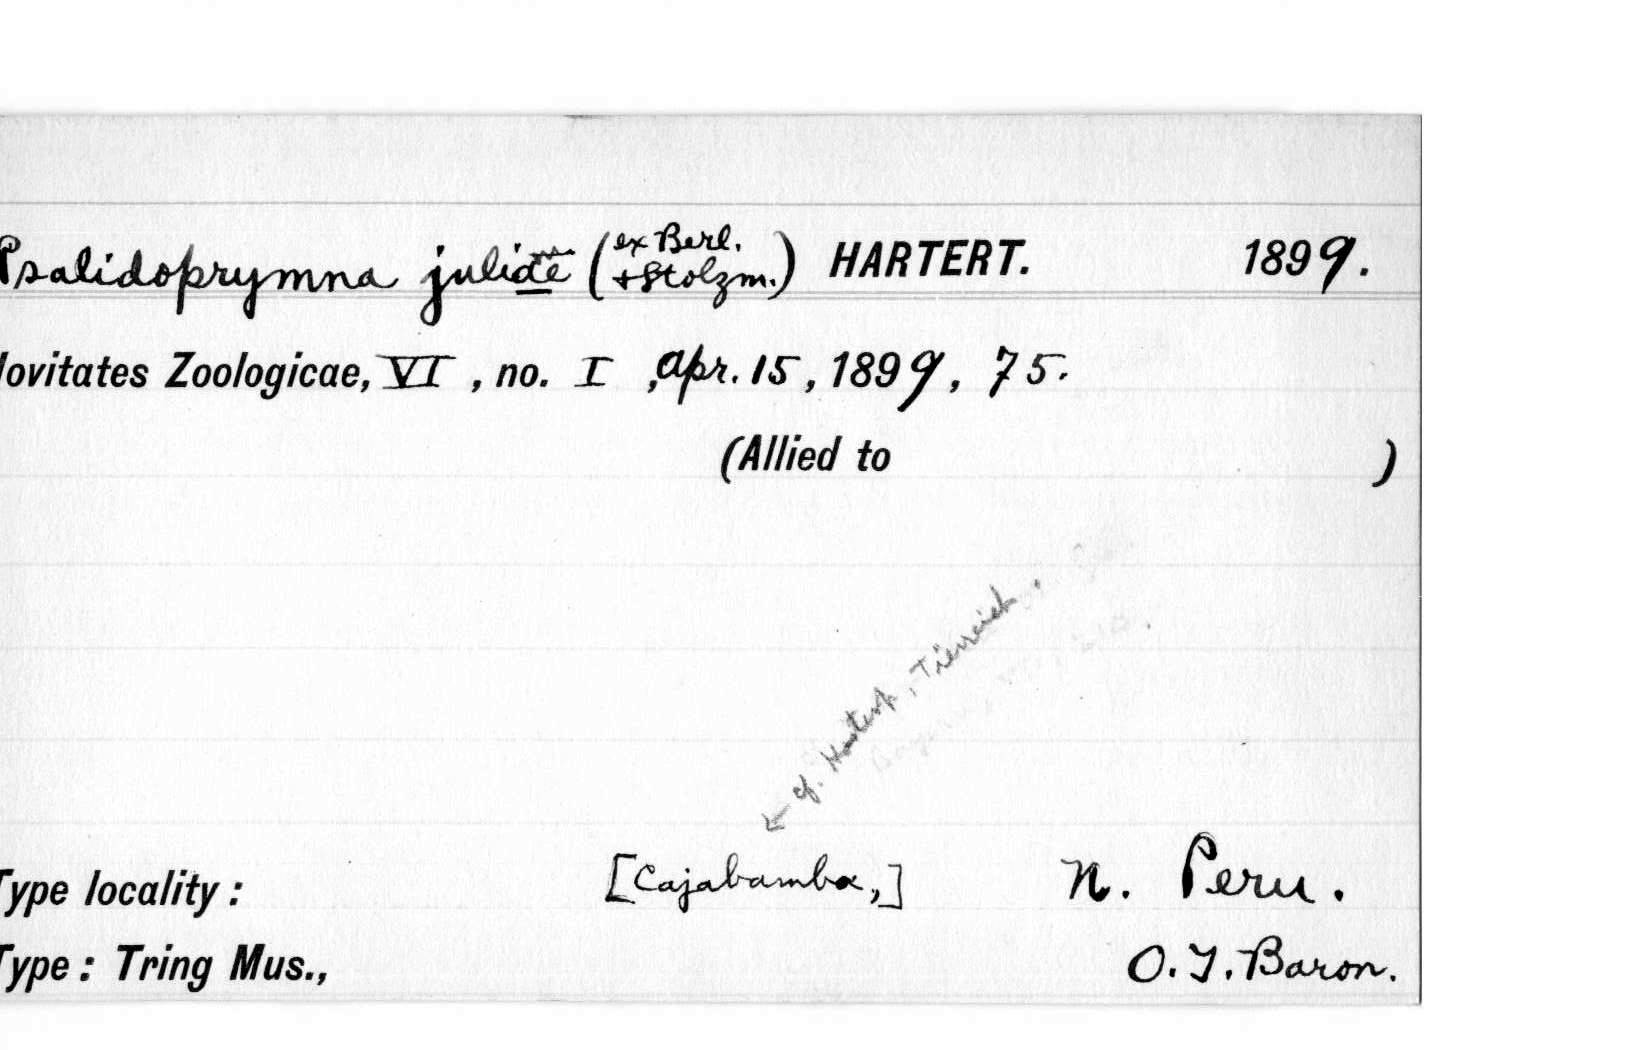 Psalidoprymna juliae (ex Berl. + Stolzm.) HARTERT. 1899.
Novitates Zoologicae, VI, no. I, Apr. 15, 1899, 75.
(Allied to )
cf. Hartert, Tierreich.
Type locality: [Cajabamba,] N. Peru.
Type: Tring Mus., O. T. Baron.